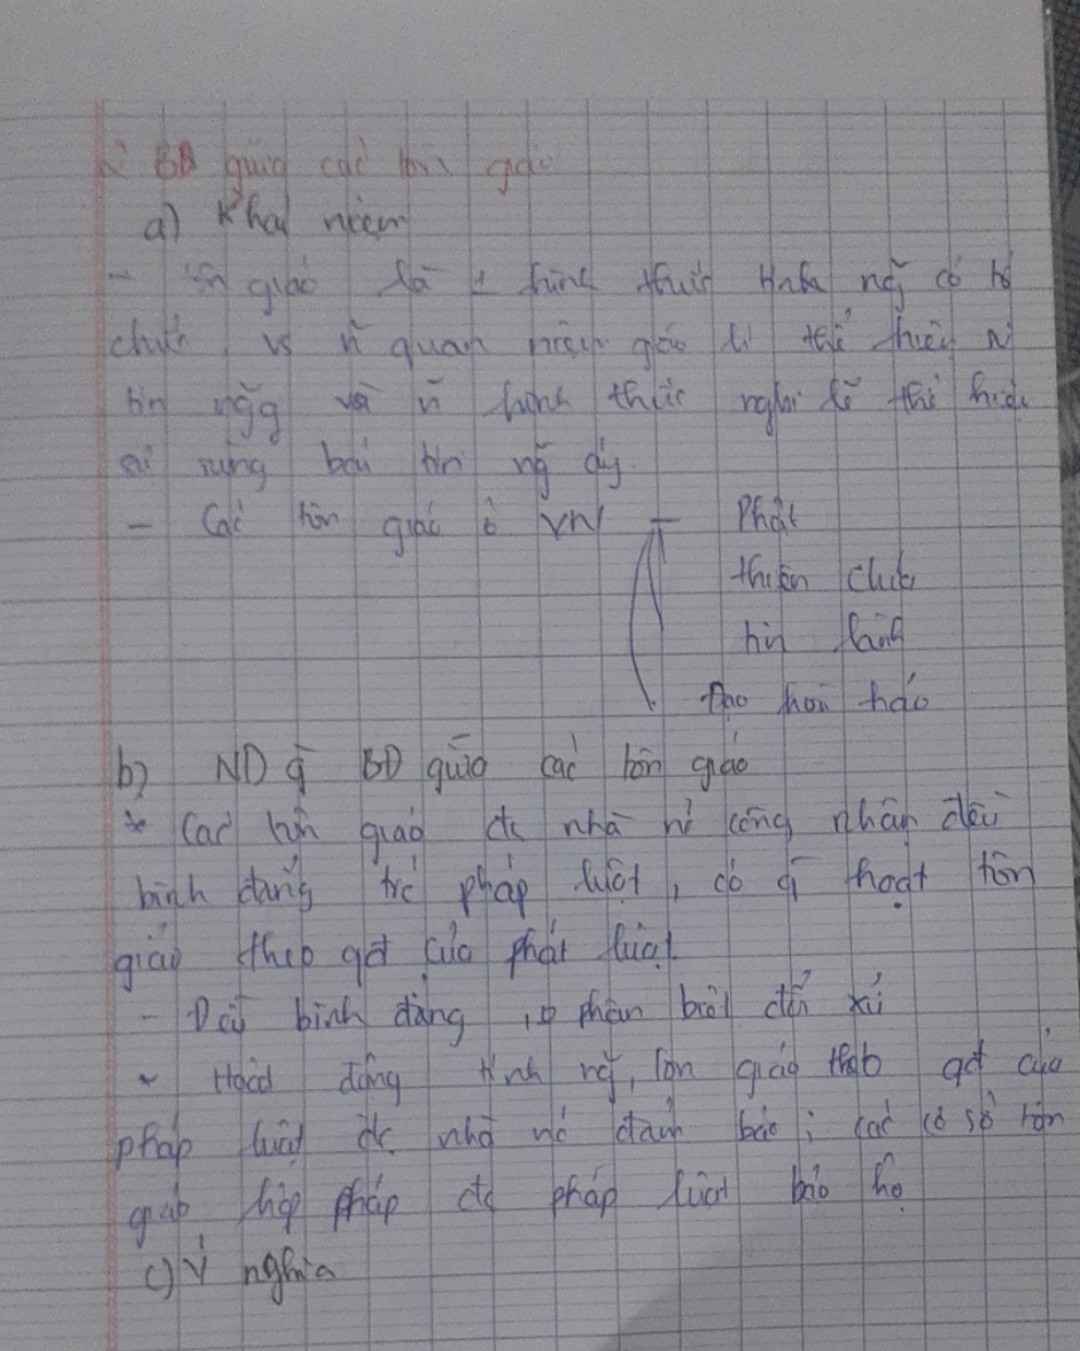 BĐ giữa các tôn giáo
a) Khái niệm
- Tôn giáo là 1 hình thức tính ng̃ có tổ
chức, vs ~ quan niệm giáo lí thể hiện
tín ngg và ~ hình thức nghi lễ thể hiện
sự sùng bái tín ng̃ ấy.
- Các tôn giáo ở VN
Phật
thiên chúa
tin lành
Đạo hoà hảo
b) ND q̃ BĐ giữa các tôn giáo
* Các tôn giáo đc nhà nc công nhận đều
bình đẳng trc pháp luật, có q̃ hoạt tôn
giáo theo qđ của pháp luật
- Đều bình đẳng, phân biệt đối xử
* Hoạt động tính ng̃, tôn giáo theo qđ của
pháp luật đc nhà nc đảm bảo; các cơ sở tôn
giáo hợp pháp đc pháp luật bảo hộ
c) Ý nghĩa